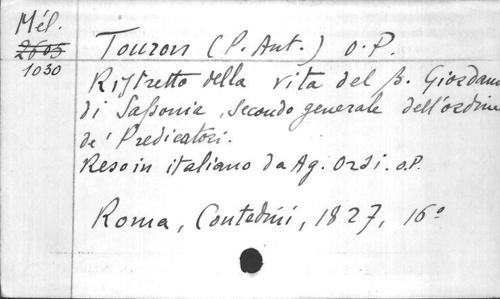 Mél.
2605
1030
Touron (P. Ant.) O.P.
Ristretto della vita del B. Giordano
di Saßonia, secondo generale dell'ordine
de' Predicatori.
Reso in italiano da Ag. Orsi. O.P.
Roma, Contedini, 1827, 16º